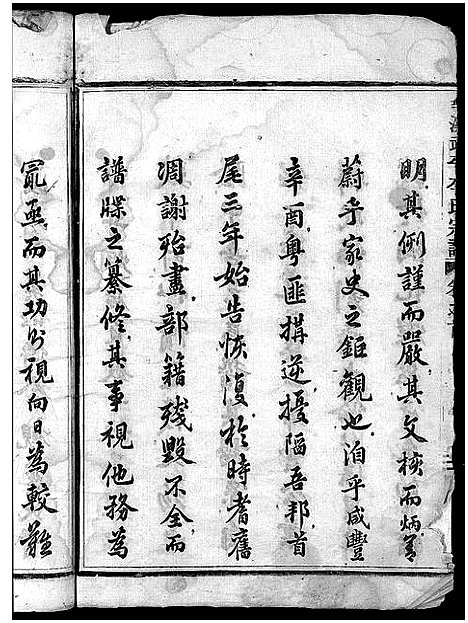 明其例謹而嚴其文核而炳蓋
蔚乎家史之鉅觀也洎乎咸豐
辛酉粵匪搆逆擾隘吾邦首
尾三年始告恢復於時耆舊
凋謝殆盡部籍殘毀不全而
譜牒之纂修其事視他務為
冣亟而其功必視向日為較難